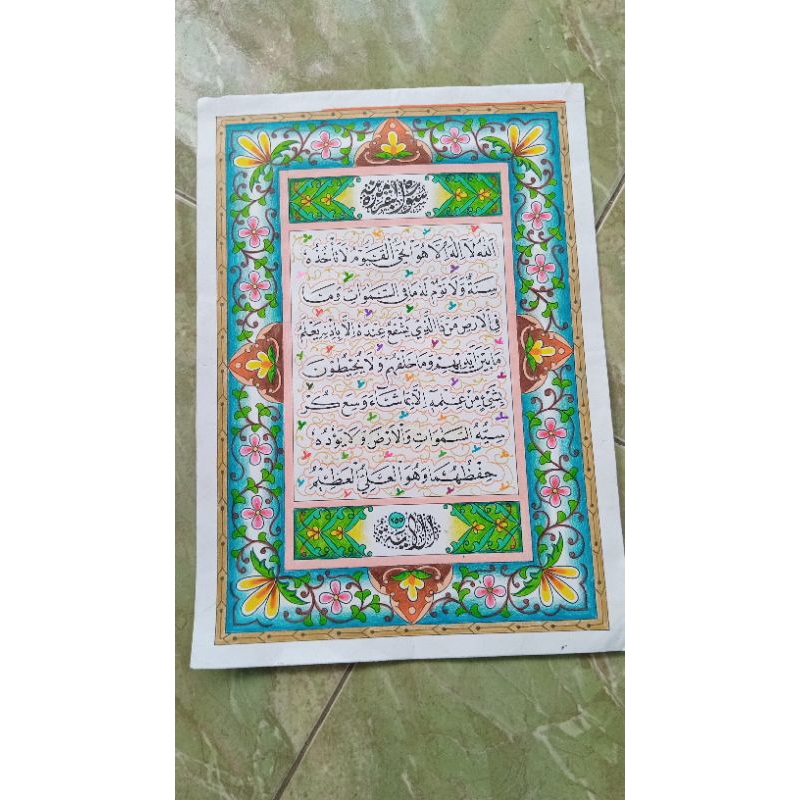 سورة البقرة مدنية
اَللّٰهُ لَا اِلٰهَ اِلَّا هُوَ الْحَيُّ الْقَيُّوْمُ لَا تَأْخُذُهُ
سِنَةٌ وَلَا نَوْمٌ لَهُ مَا فِى السَّمٰوَاتِ وَمَا
فِى الْاَرْضِ مَنْ ذَا الَّذِيْ يَشْفَعُ عِنْدَهُ اِلَّا بِاِذْنِهِ يَعْلَمُ
مَا بَيْنَ اَيْدِيْهِمْ وَمَا خَلْفَهُمْ وَلَا يُحِيْطُوْنَ
بِشَيْءٍ مِنْ عِلْمِهِ اِلَّا بِمَا شَآءَ وَسِعَ كُرْ
سِيُّهُ السَّمٰوَاتِ وَالْاَرْضَ وَلَا يَؤُدُهُ
حِفْظُهُمَا وَهُوَ الْعَلِيُّ الْعَظِيْمُ
الاية ٢٥٥